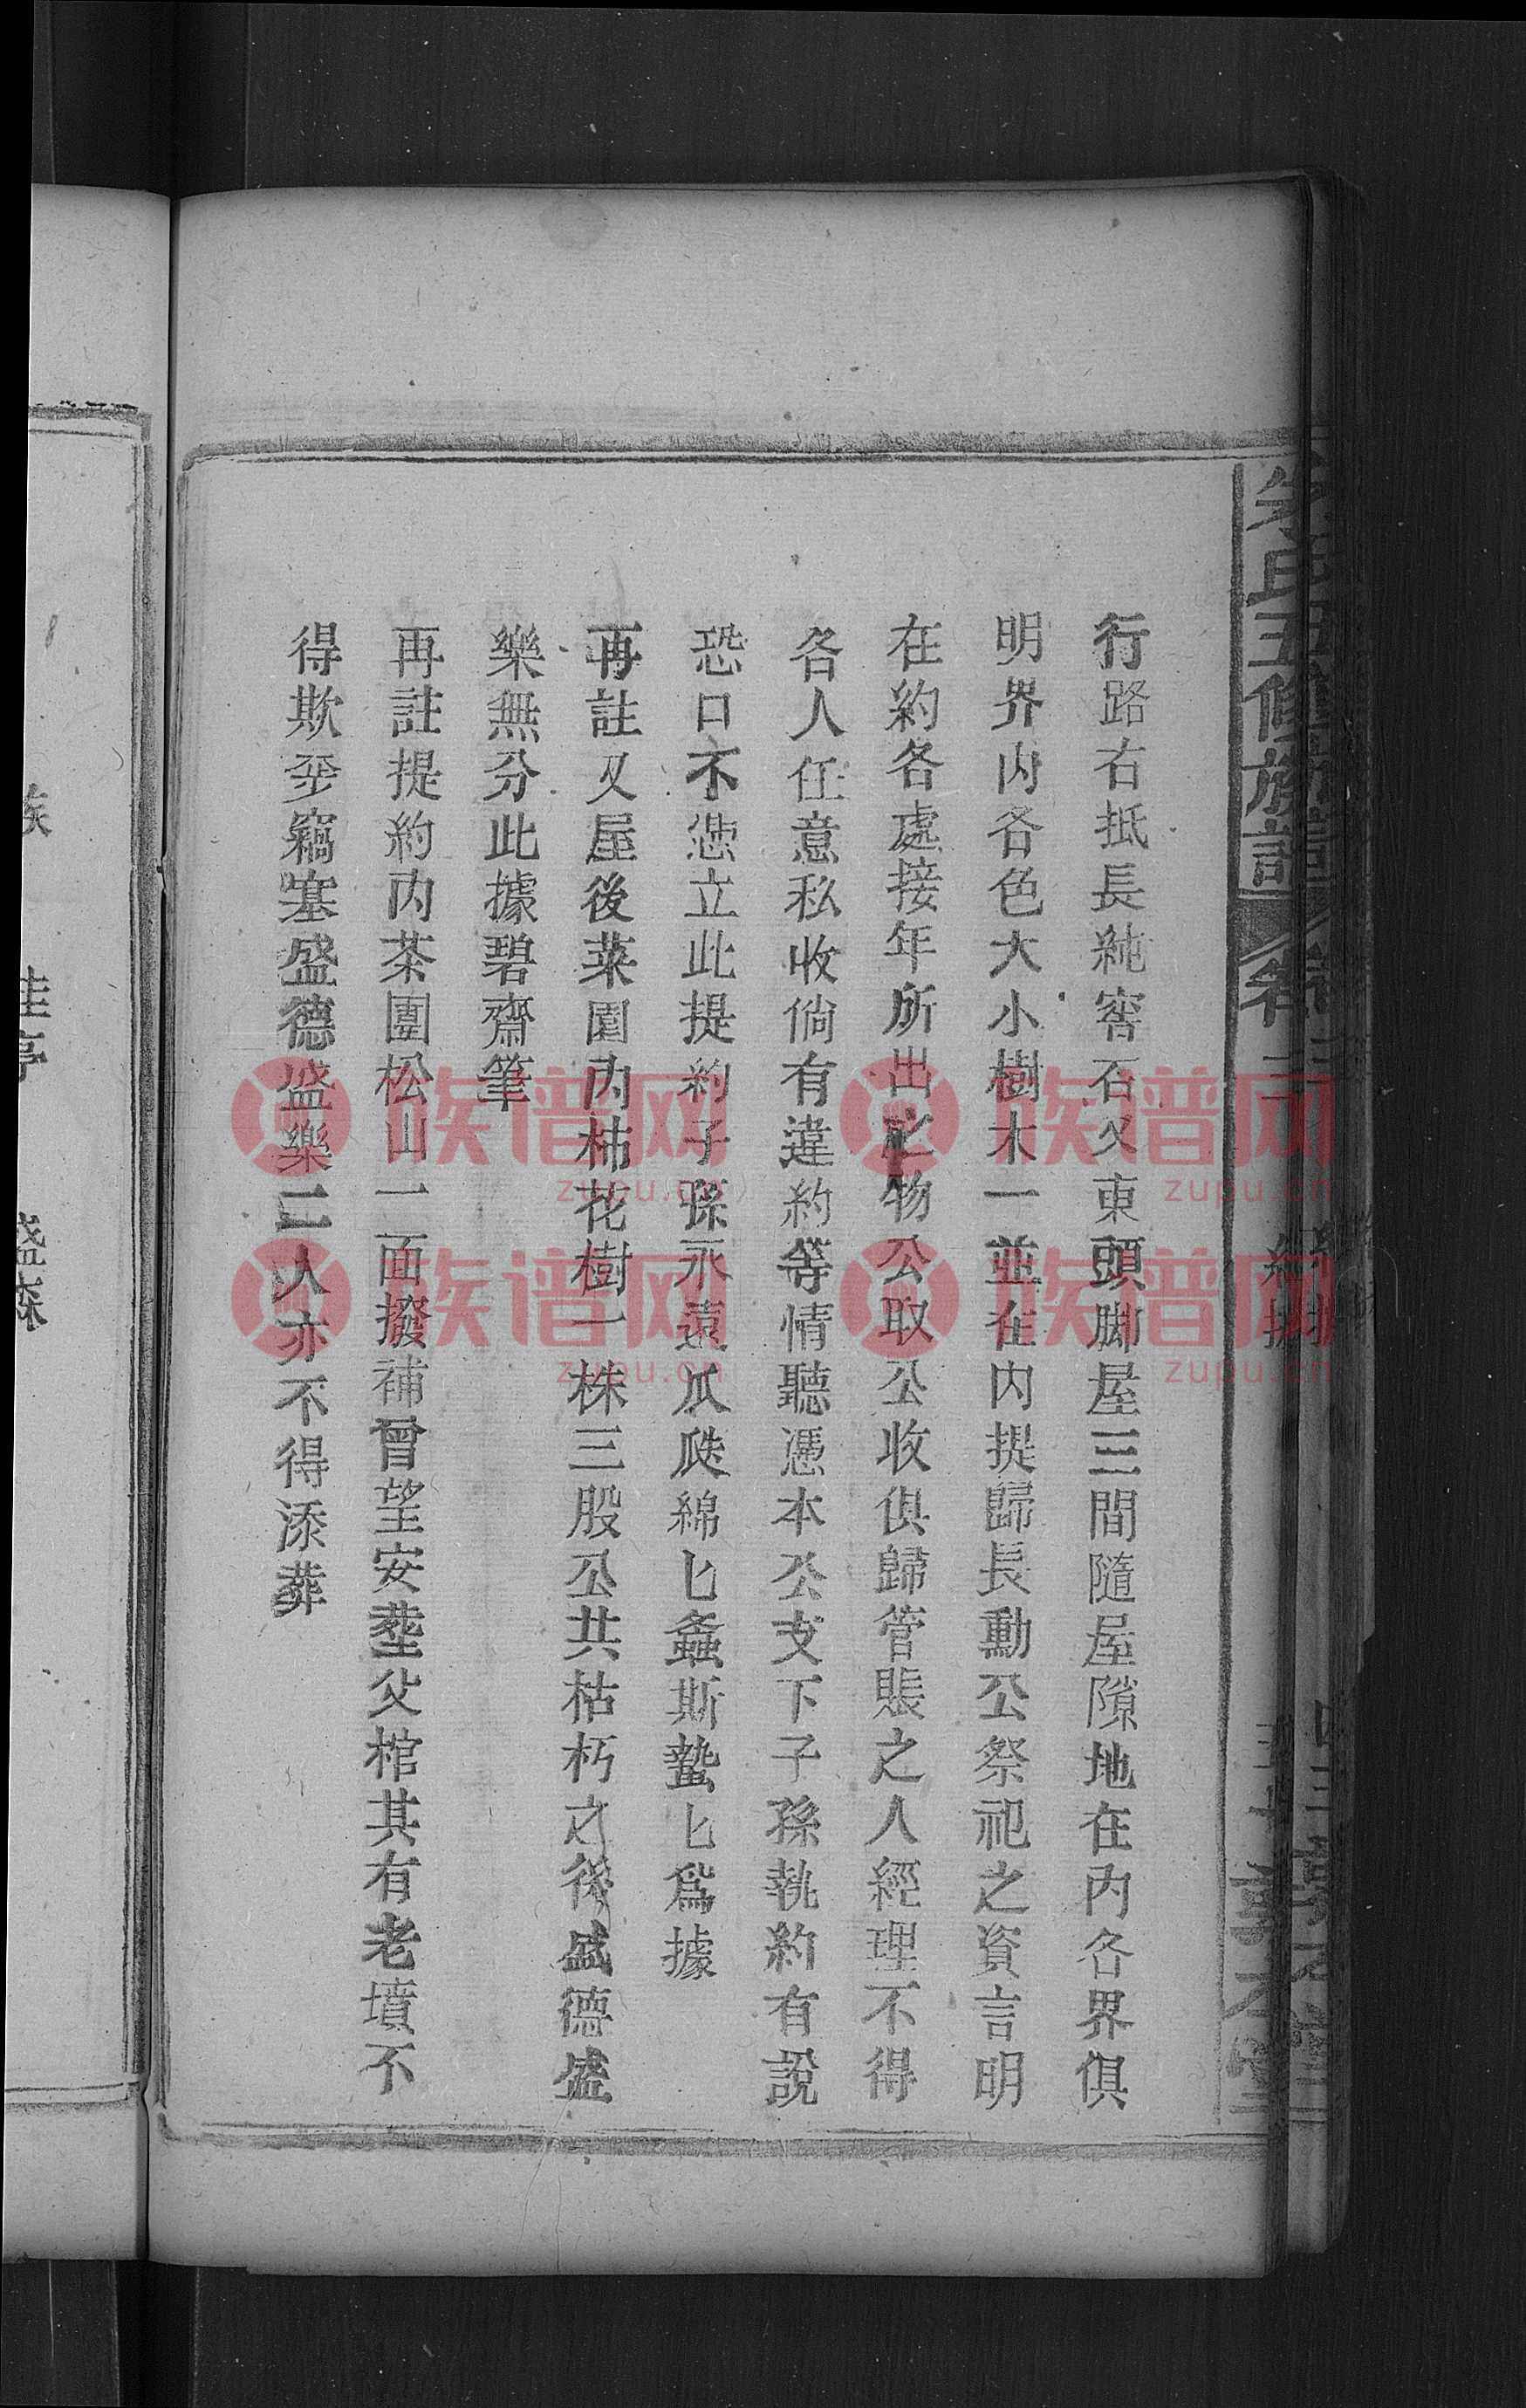 氏五修族譜
卷二
契據
行路右抵長純窖石又東頭脚屋三間隨屋隙地在內各界俱
明界內各色大小樹木一並在內提歸長勳公祭祀之資言明
在約各處接年所出之物公取公收俱歸管賬之人經理不得
各人任意私收倘有違約等情聽憑本公支下子孫執約有說
恐口不慿立此提約子孫永遠瓜瓞綿匕螽斯蟄匕爲據
再註又屋後菜園內柿花樹一株三股公共枯朽之後盛德盛
樂無分此據碧齋筆
再註提約內茶園松山一面撥補曾望安塟父棺其有老墳不
得欺 竊塞盛德盛樂二人亦不得添葬
族
桂亭